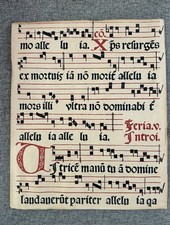 cō.
mo alle lu ia. Xp̄s resurgēs
ex mortuis iā nō morit̄ allelu ia
mors illi ultra nō dominabit̄
allelu ia alle lu ia. Feria.v. Introi.
Uictricē manū tuā domine
laudauerūt pariter allelu ia qa